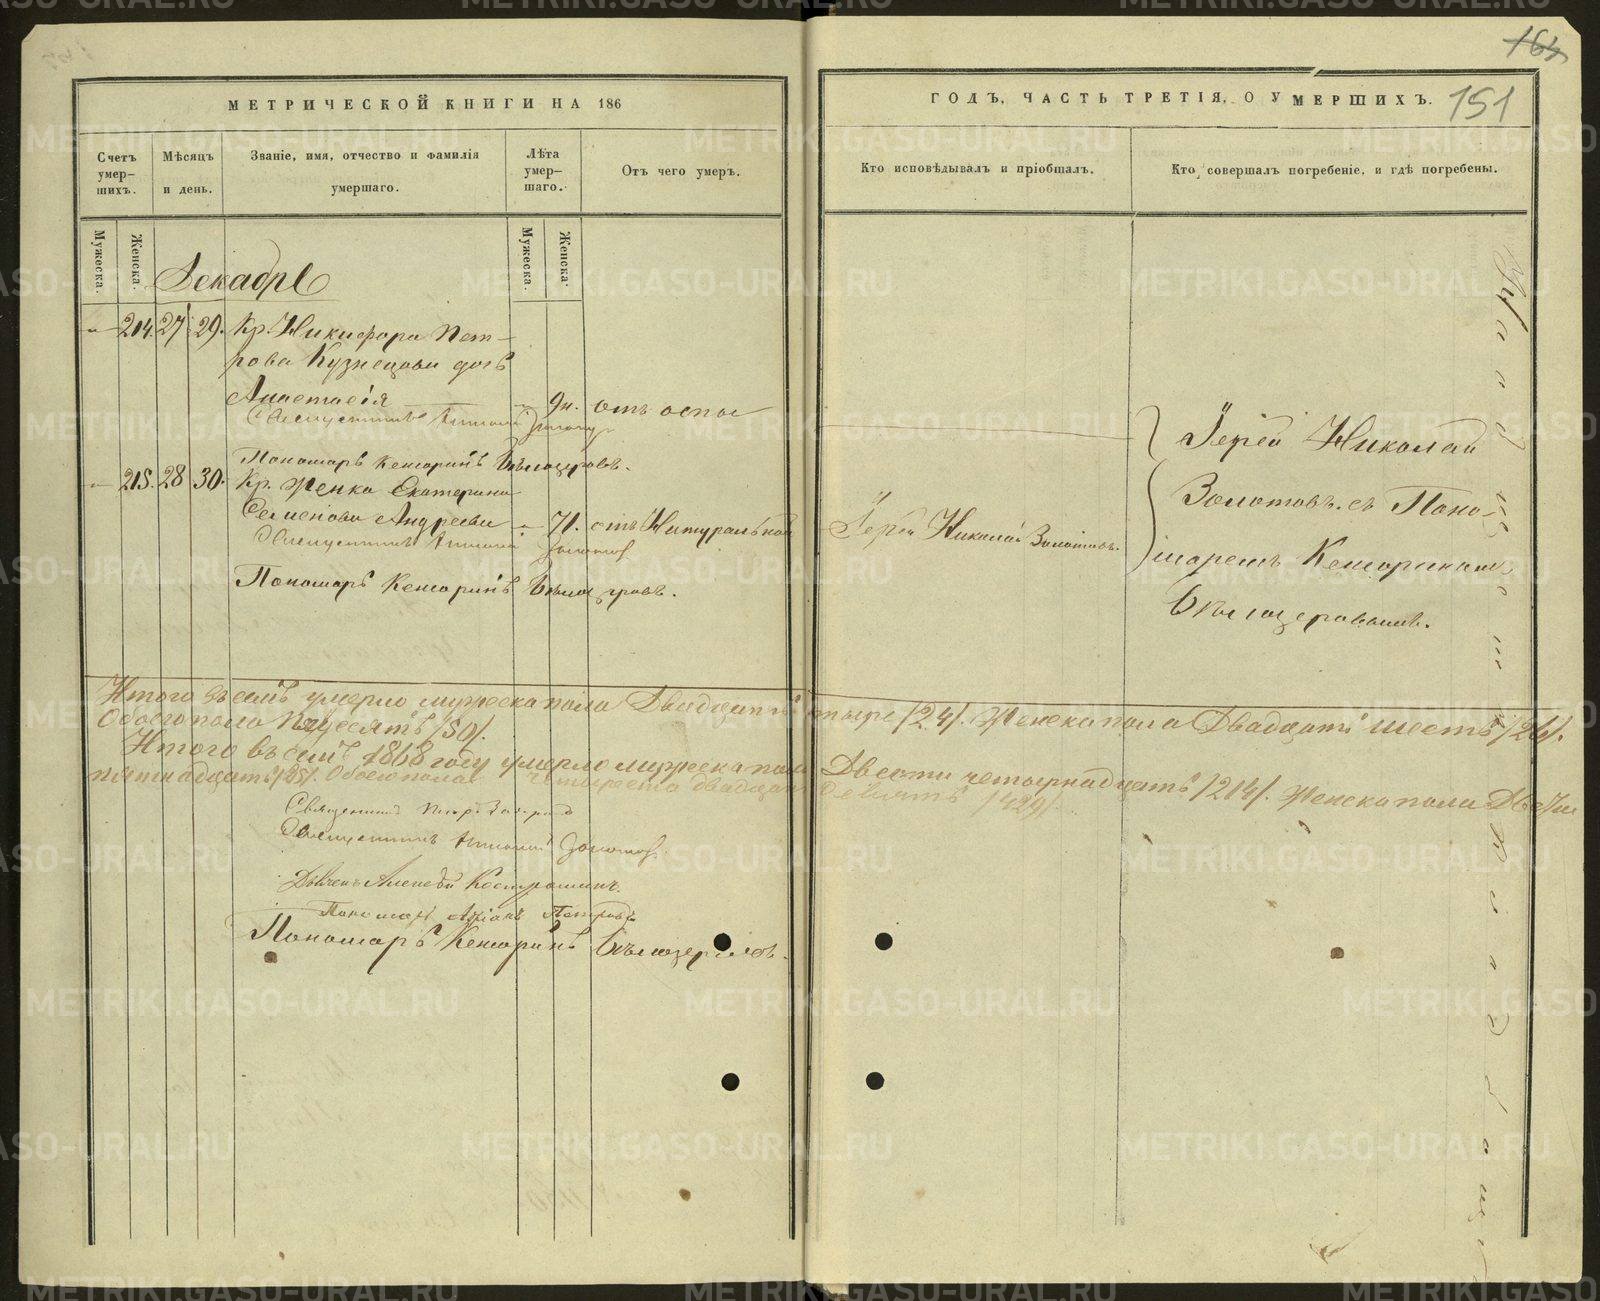 МЕТРИЧЕСКОЙ КНИГИ НА 186
Счетъ умер-
шихъ.
Мѣсяцъ
и день.
Званіе, имя, отчество и фамилія
умершаго.
Лѣта
умер-
шаго.
Отъ чего умеръ.
Мужеска.
Женска.
Мужеска.
Женска.
Декабрь
214. 27 29. Кр. Никифора Пет-
рова Кузнецова дочь
Анастасія 9н. отъ оспы
Священникъ
Пономарь Бѣлозеровъ.
215. 28 30. Кр. Женка Екатерина
Семенова Андреева 71. отъ Натуральной
Священникъ
Пономарь Бѣлозеровъ.
Итого въ семъ умерло мужеска пола Двадцать
Обоего пола Пядесятъ /50/.
Итого въ семъ 1868 году умерло мужеска пола
пятнадцать /215/. Обоего пола Четыреста двадцать
Священникъ Петръ
Священникъ
Дьяченъ Алексѣй
Пономарь Петровъ
Пономарь Бѣлозеровъ.
164
151
ГОДЪ, ЧАСТЬ ТРЕТІЯ, О УМЕРШИХЪ.
Кто исповѣдывалъ и пріобщалъ.
Кто совершалъ погребеніе, и гдѣ погребены.
Іерей Николай Золотовъ.
Іерей Николай
Золотовъ съ Поно-
маремъ
Бѣлозеровымъ.
тыре /24/. Женска пола Двадцать шесть /26/.
Двести четырнадцать /214/. Женска пола Двести
девять /429/.
METRIKI.GASO-URAL.RU